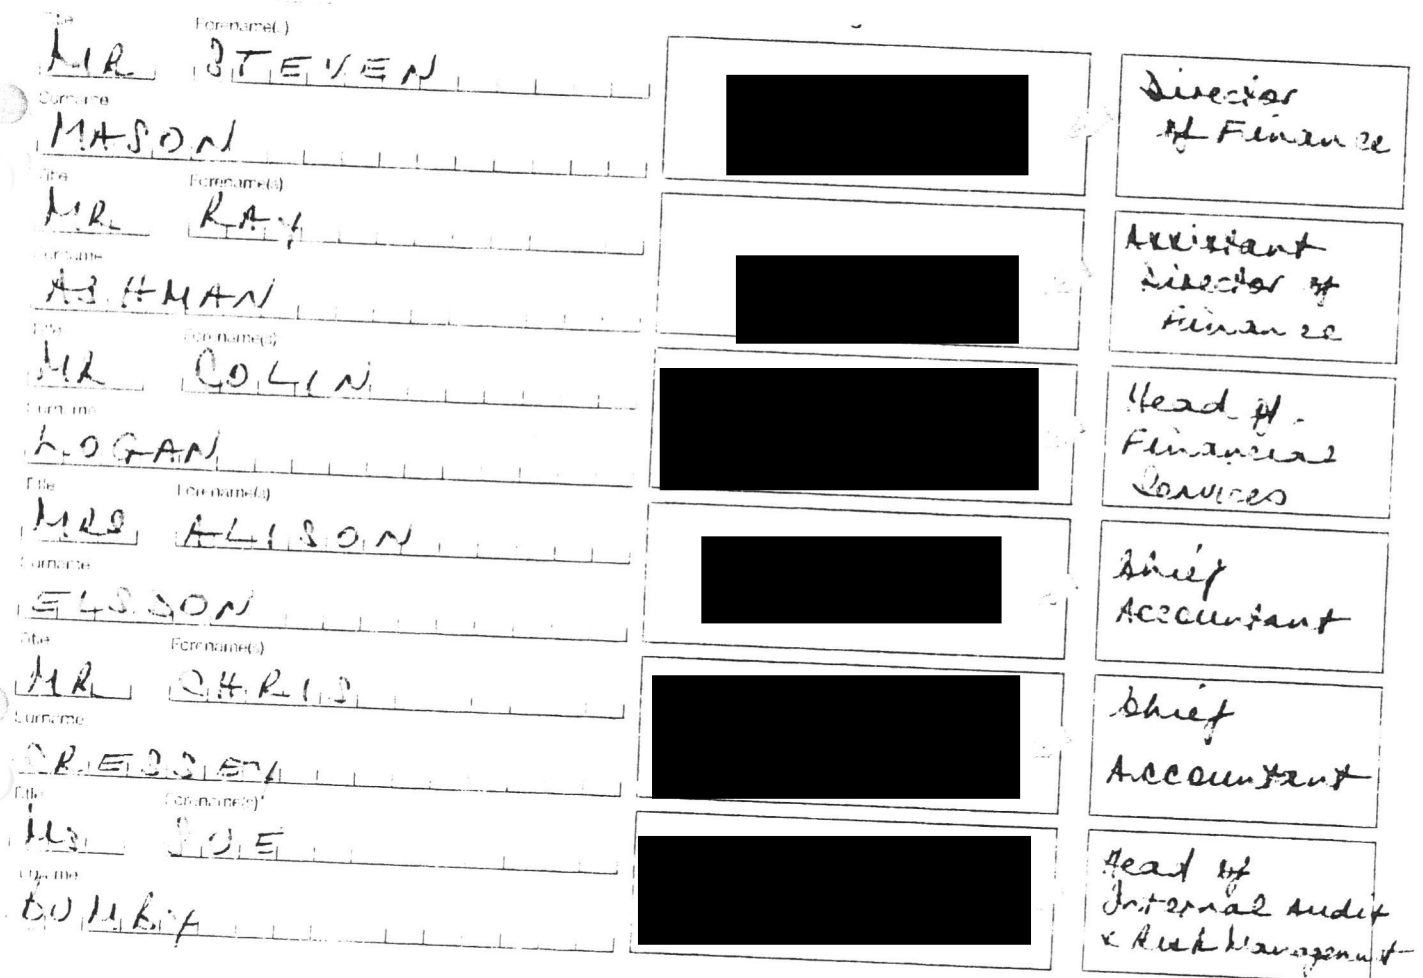 Title Forename(s)
MR STEVEN
Surname
MASON
Director
of Finance
Title Forename(s)
MR RAY
Surname
ASHMAN
Assistant
Director of
Finance
Title Forename(s)
MR COLIN
Surname
LOGAN
Head of
Financial
Services
Title Forename(s)
MRS ALISON
Surname
ELSDON
Chief
Accountant
Title Forename(s)
MR CHRIS
Surname
CRESSEY
Chief
Accountant
Title Forename(s)
MS SUE
Surname
BUMBY
Head of
Internal Audit
& Risk Management